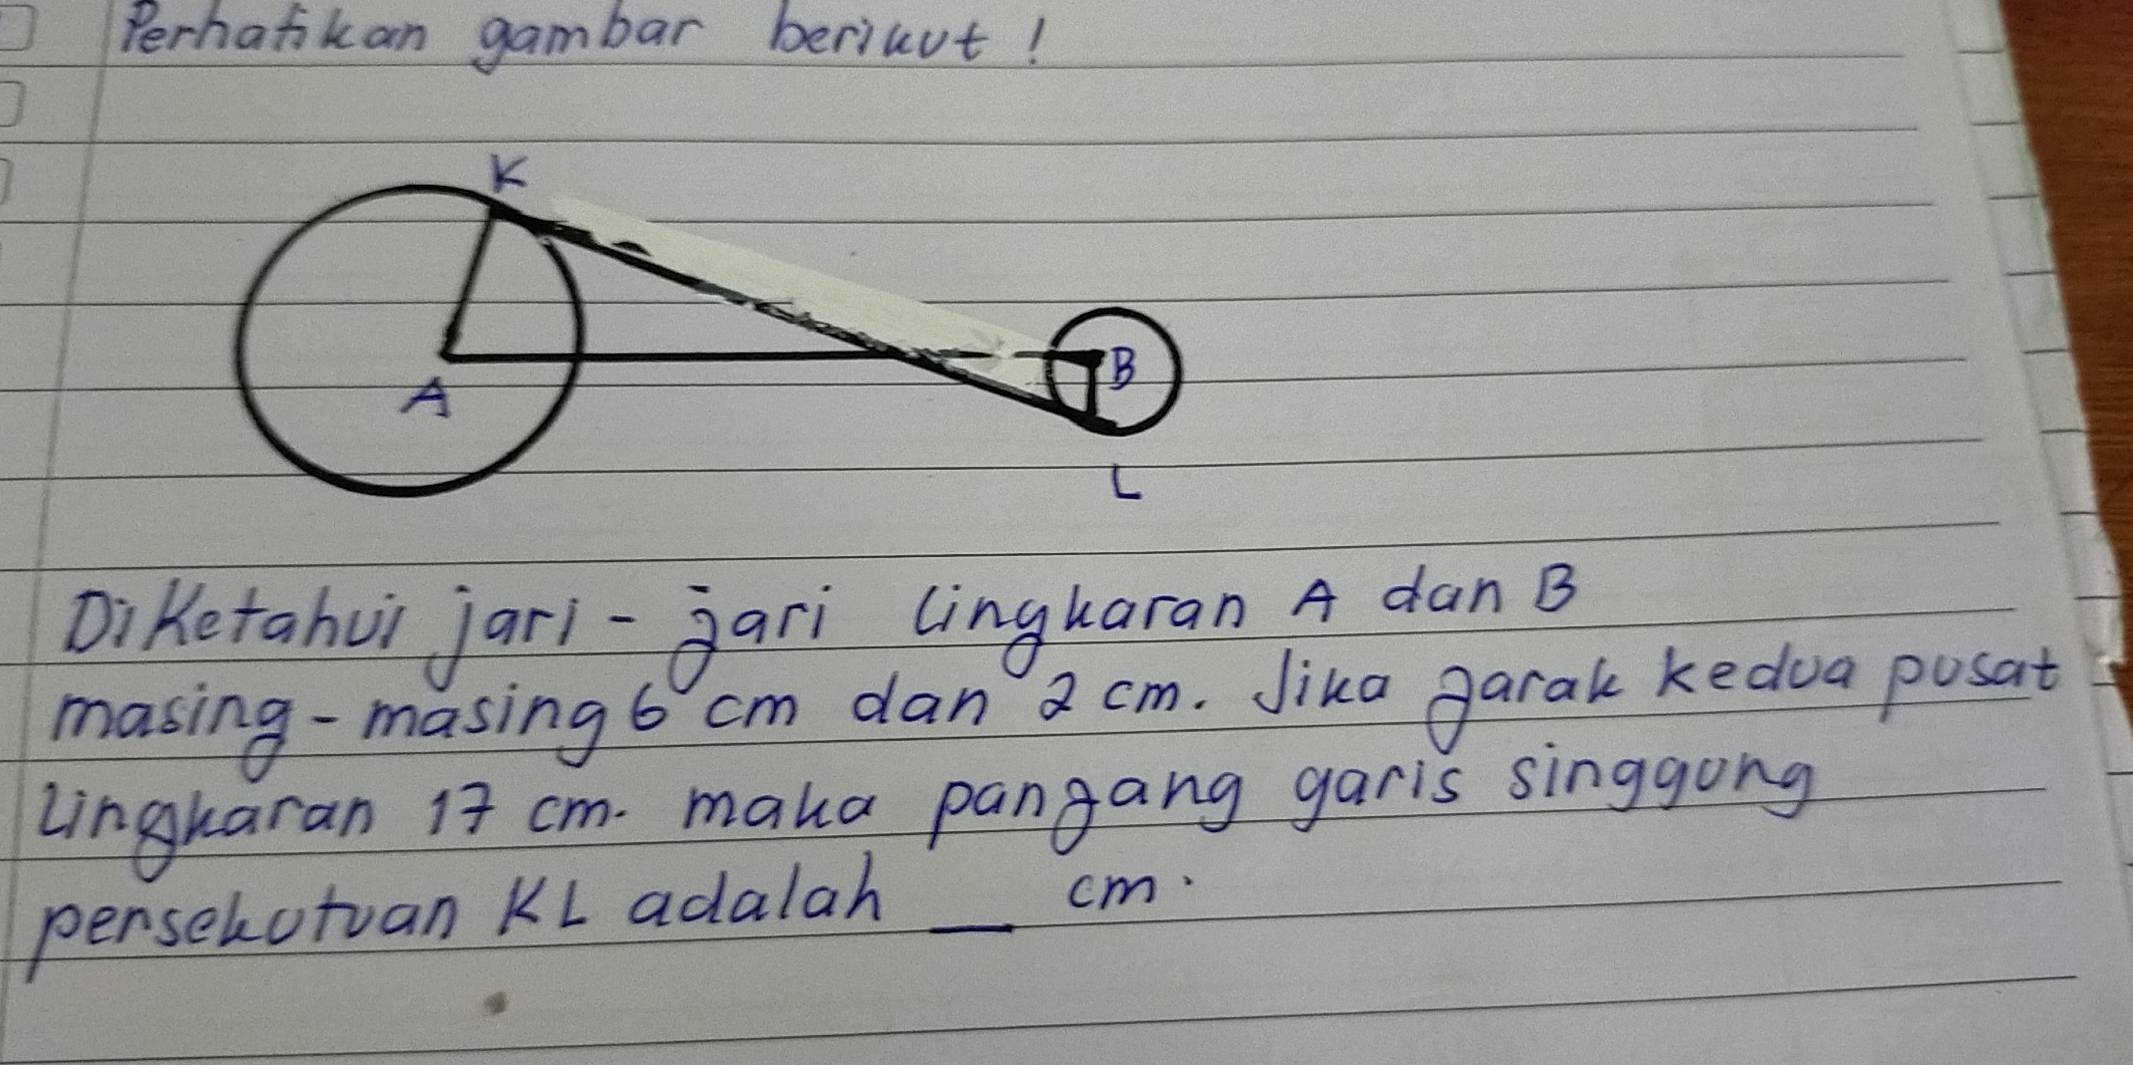 Perhatikan gambar berikut!
K
A
B
L
Diketahui jari-jari lingkaran A dan B
masing-masing 6 cm dan 2 cm. Jika jarak kedua pusat
lingkaran 17 cm. maka panjang garis singgung
persekutuan KL adalah __ cm.